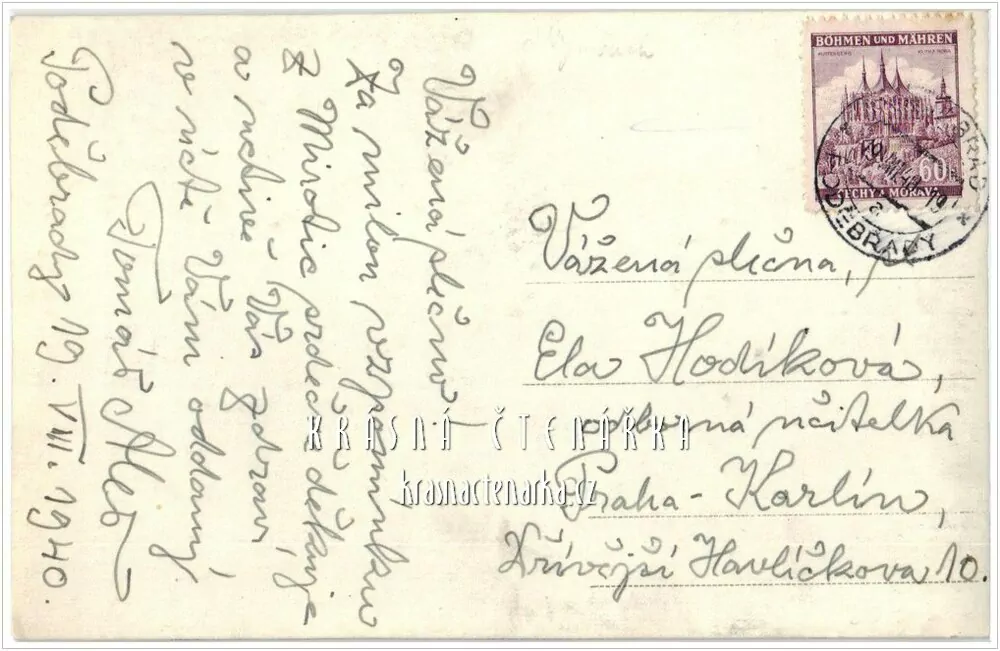 Vážená slečno,
Za milou vzpomínku
z Mirotic srdečně děkuje
a uctivě Vás zdraví
v úctě Vám oddaný
Tomáš Aleš
Poděbrady 19. VIII. 1940.
BÖHMEN UND MÄHREN
60
ČECHY A MORAVA
PODĚBRADY
Vážená slečna, p.
Ela Hodíková,
odborná učitelka
Praha - Karlín,
Dřívější Havlíčkova 10.
KRÁSNÁ ČTENÁŘKA
krasnactenarka.cz